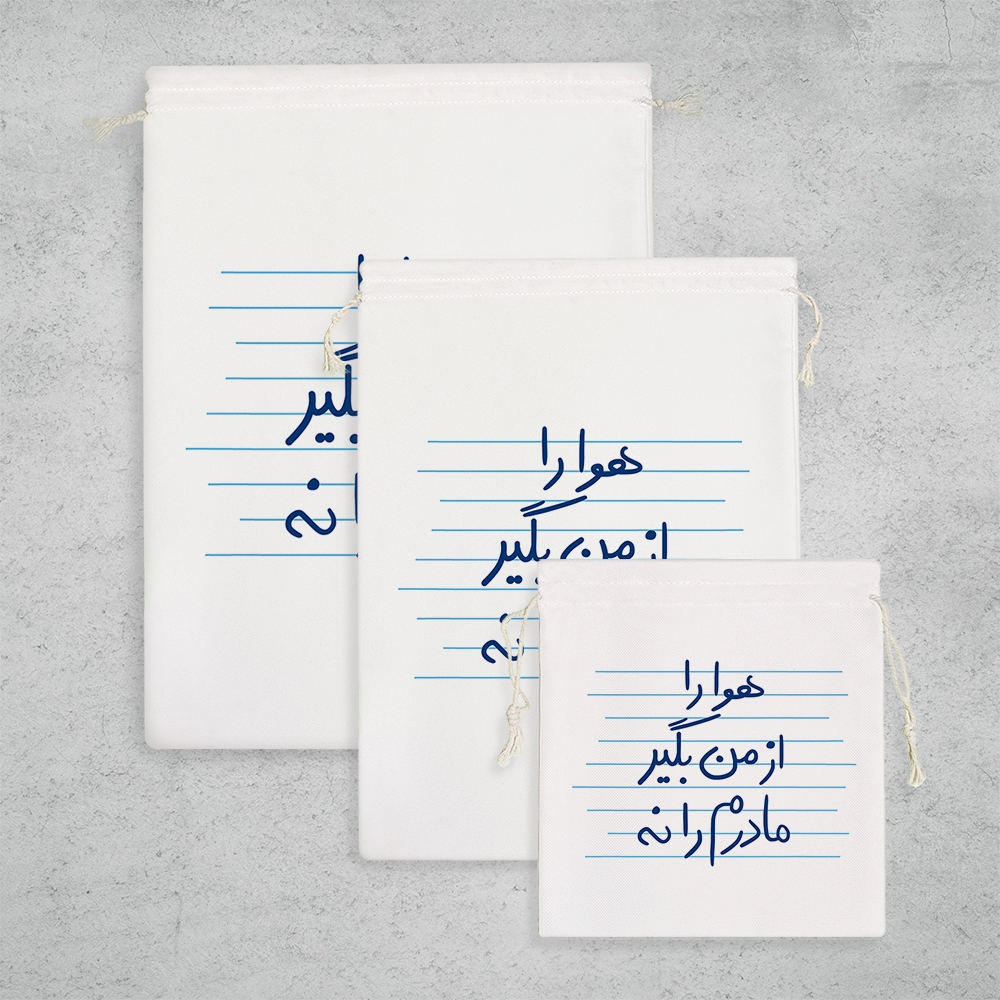 گیر
نه
هوا را
از من بگیر
نه
هوا را
از من بگیر
مادرم را نه